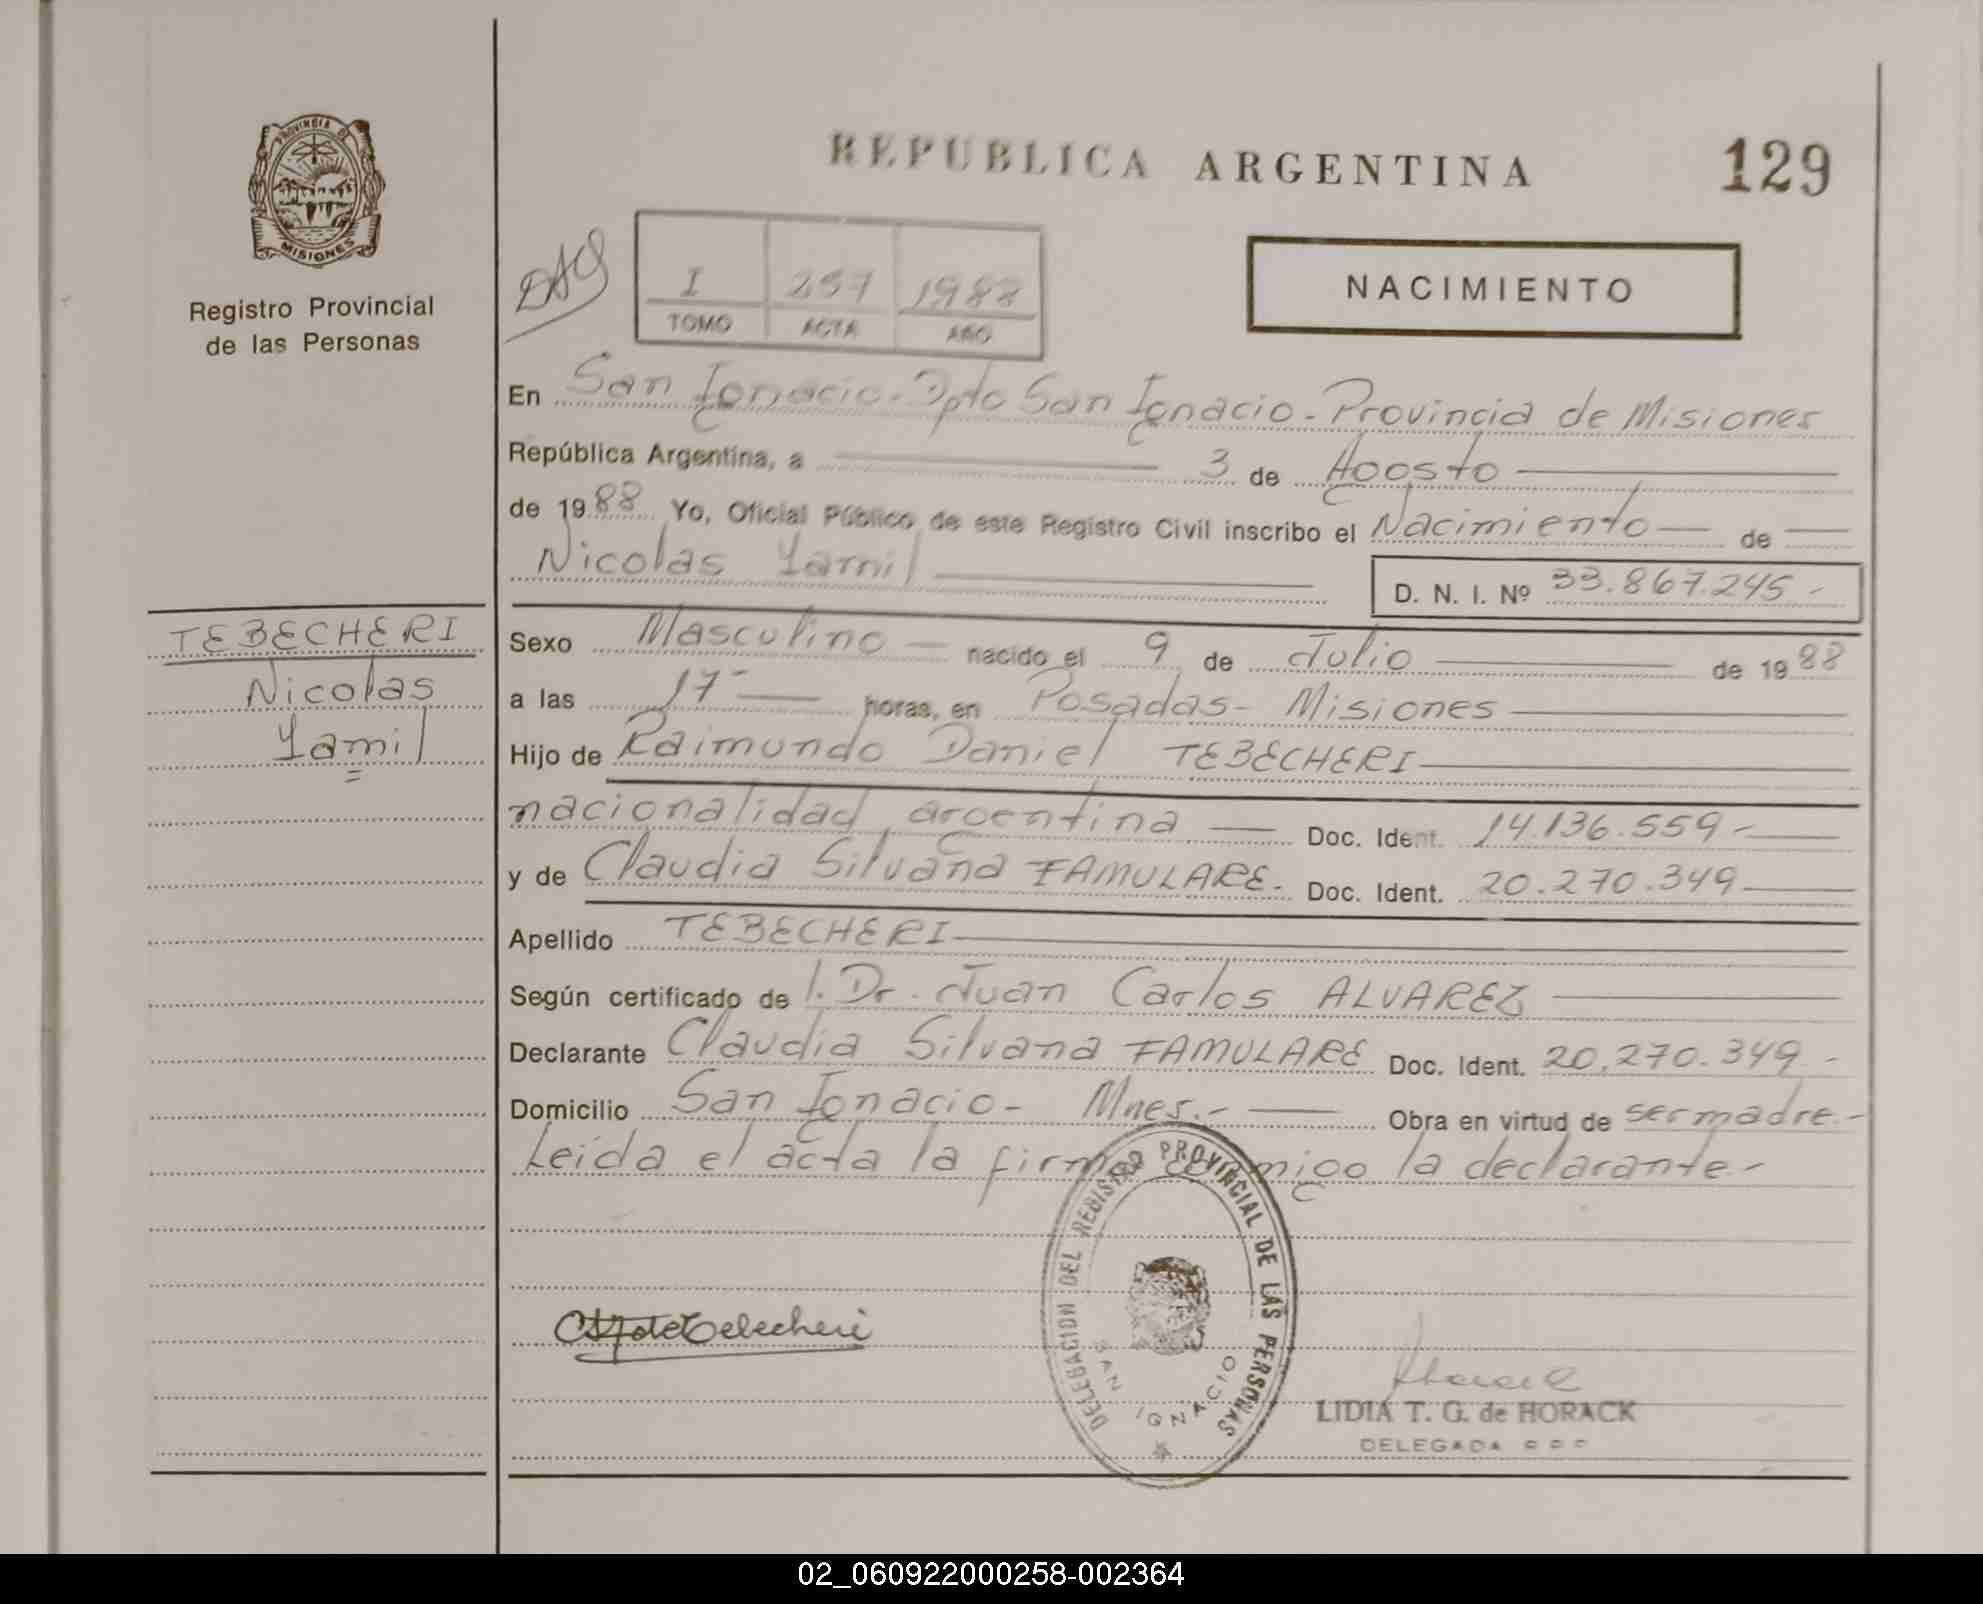 PROVINCIA DE
MISIONES
Registro Provincial
de las Personas
TEBECHERI
Nicolas
Yamil
REPUBLICA ARGENTINA
129
I 257 1988
TOMO ACTA AÑO
NACIMIENTO
En San Ignacio - Dpto San Ignacio - Provincia de Misiones
República Argentina, a 3 de Agosto
de 1988 Yo, Oficial Público de este Registro Civil inscribo el Nacimiento de
Nicolas Yamil D. N. I. Nº 33.867.245 -
Sexo Masculino nacido el 9 de Julio de 1988
a las 17 horas, en Posadas - Misiones
Hijo de Raimundo Daniel TEBECHERI
nacionalidad argentina Doc. Ident. 14.136.559 -
y de Claudia Silvana FAMULARE. Doc. Ident. 20.270.349
Apellido TEBECHERI
Según certificado de l. Dr. Juan Carlos ALVAREZ
Declarante Claudia Silvana FAMULARE Doc. Ident. 20.270.349 -
Domicilio San Ignacio - Mnes. - Obra en virtud de ser madre. -
Leída el acta la firma conmigo la declarante. -
DELEGACION DEL REGISTRO PROVINCIAL DE LAS PERSONAS
SAN IGNACIO
LIDIA T. G. de HORACK
DELEGADA
02_060922000258-002364